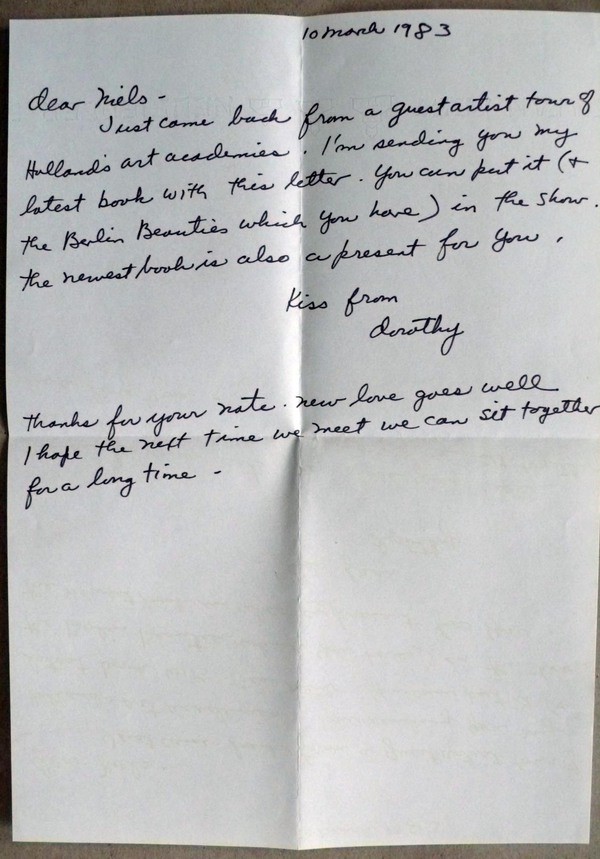 10 March 1983
dear Niels -
Just came back from a guest artist tour of
Holland's art academies. I'm sending you my
latest book with this letter. You can put it (+
the Berlin Beauties which you have) in the show.
the newest book is also a present for you.
Kiss from
dorothy
thanks for your note. new love goes well
I hope the next time we meet we can sit together
for a long time -